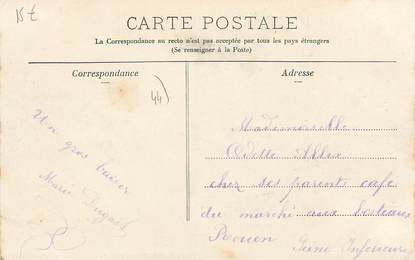 15 €
CARTE POSTALE
La Correspondance au recto n'est pas acceptée par tous les pays étrangers
(Se renseigner à la Poste)
Correspondance
Adresse
44)
Un gros baiser
Marie
Mademoiselle
Odette Allix
chez ses parents café
du marché aux bestiaux
Rouen Seine Inférieure